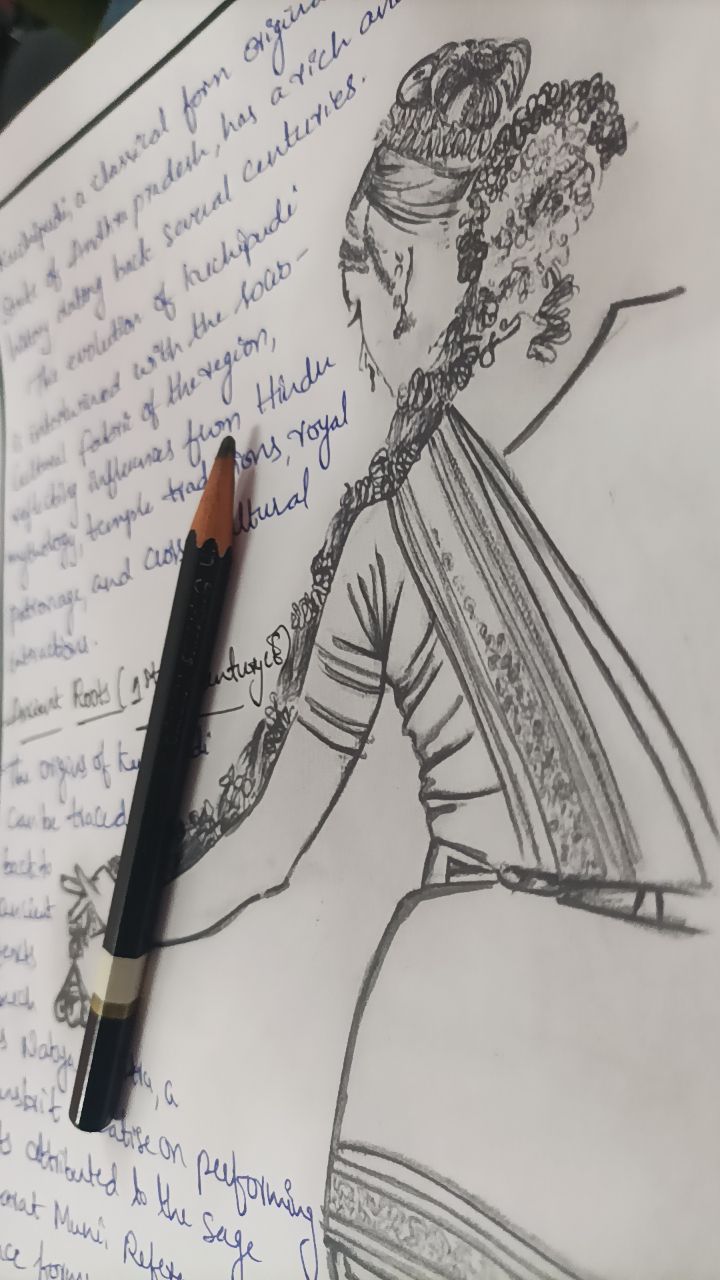 Kuchipudi, a classical form origina
State of Andhra pradesh, has a rich and
history dating back several centuries.
The evolution of kuchipudi
is intertwined with the socio-
cultural of the region,
reflecting influences from Hindu
mythology, temple traditions, royal
patronage, and cross cultural
interactions.
Ancient Roots (1st century CE)
The origins of Ku di
can be traced
back to
ancient
Natya tra, a
atise on performing
ts attributed to the sage
arat Muni. Refere
nce form